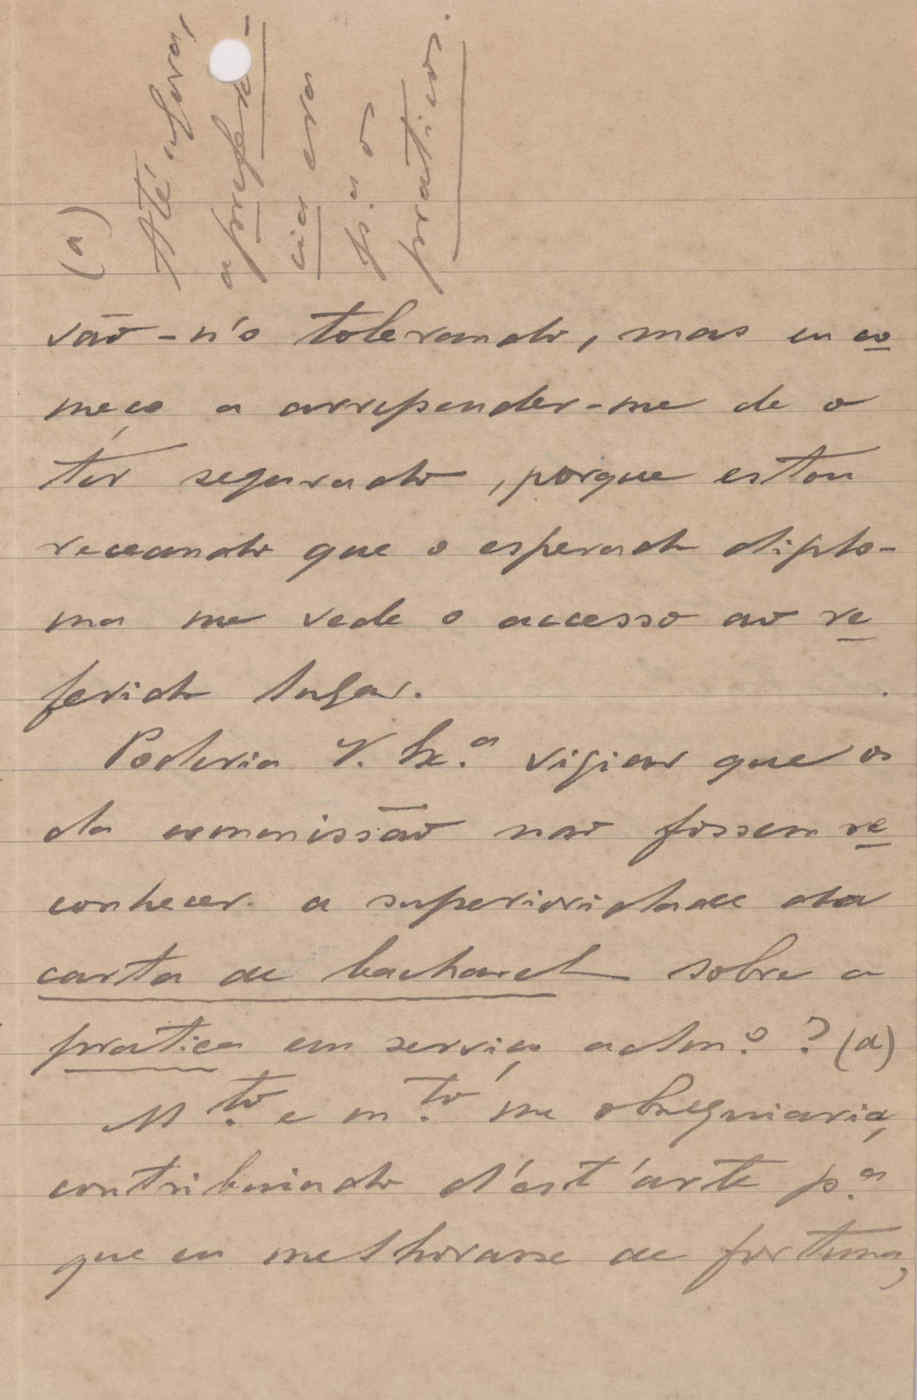 (a)
Até agora,
a preferen-
cia era
p.ª o
praticos.
vão-n'o tolerando, mas eu co
meço a arrepender-me de o
ter segurado, porque estou
receando que o esperado diplo-
ma me vede o accesso ao re
ferido lugar.
Poderia V. Ex.ª vigiar que os
da commissão nao fossem re
conhecer a superioridade da
carta de bacharel sobre a
pratica em serviço adm.º? (a)
M.to e m.to me obsequiaria,
contribuindo d'est'arte p.ª
que eu melhorasse de fortuna,